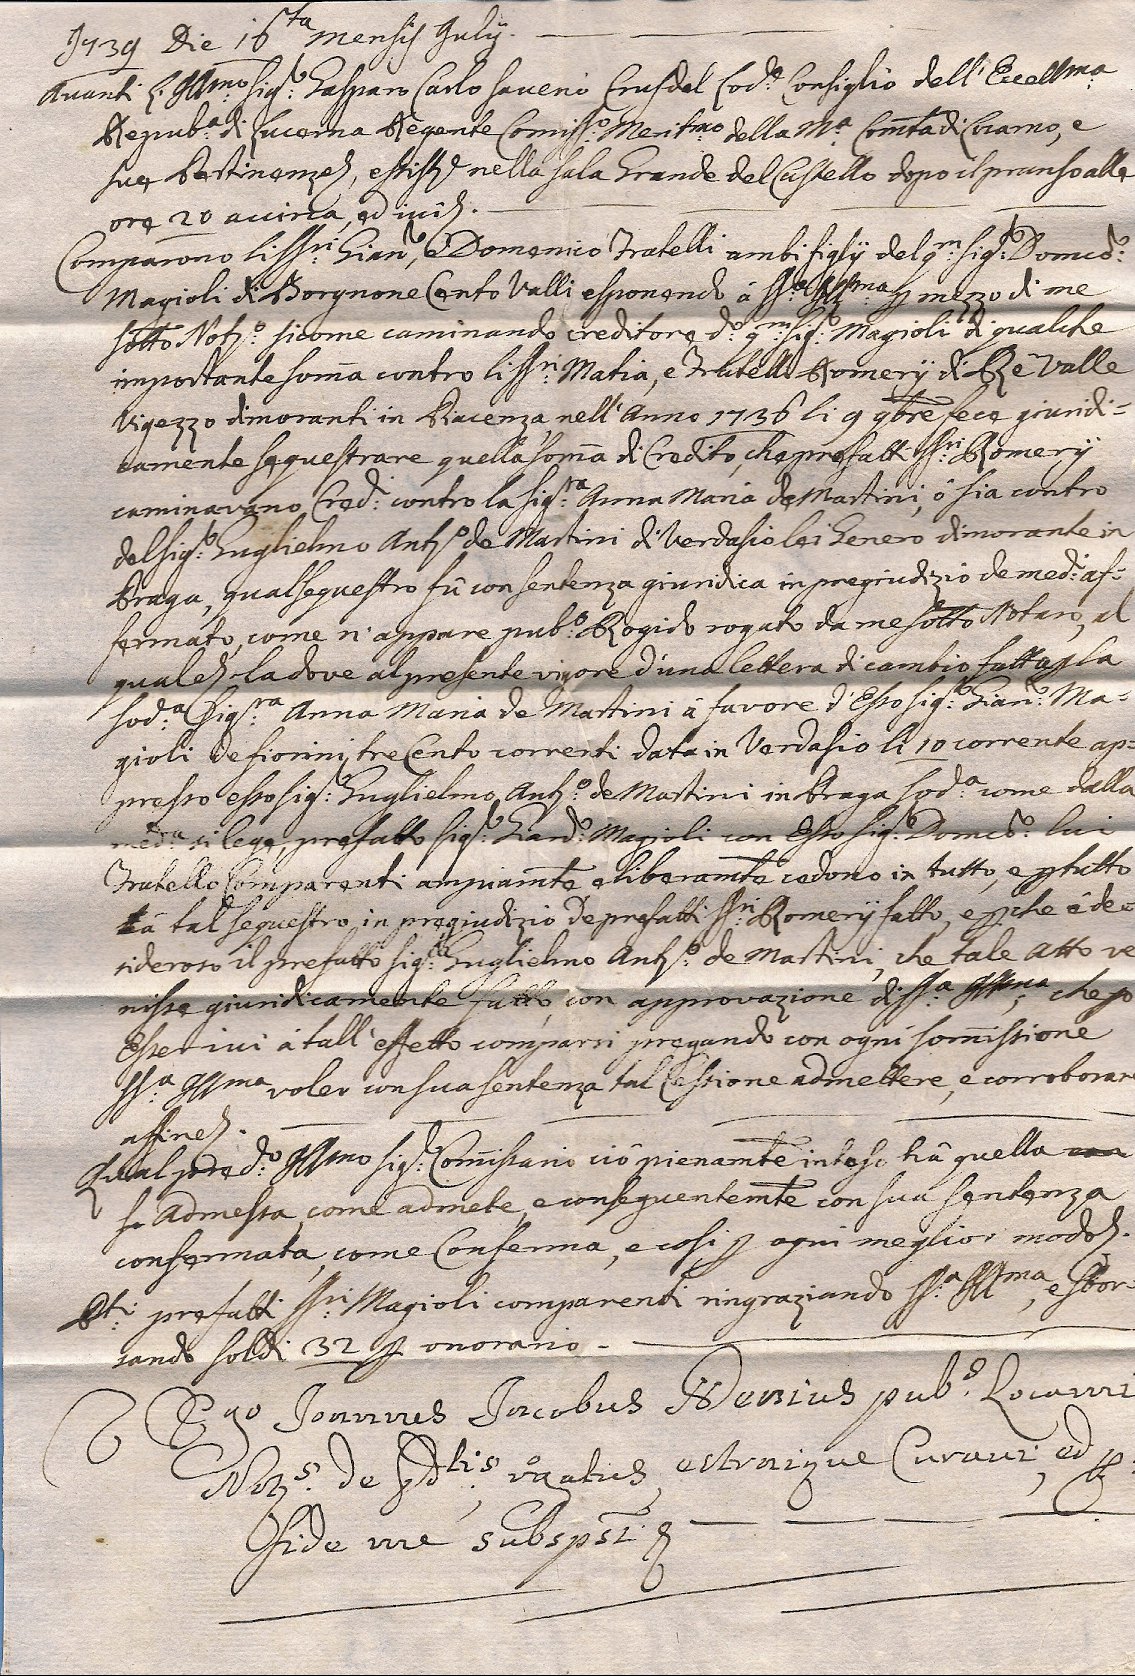 1739 Die 16ta mensis July.
Avanti l'Illmo Sigr. Gasparo Carlo Saverio Crus del Cod.e Consiglio dell' Eccellma
Repub.a di Lucerna Regente Comiss.o Meritmo della Ma. Comtà di Locarno, e
sue Pertinenze, esist.e nella Sala Grande del Castello dopo il pranso alle
ore 20 accirca, ed ivi.
Comparono li SS.ri Gian, e Domenico Fratelli ambi figlÿ del qm. sigr. Domco.
Magioli di Borgnone Cento Valli esponendo á SSa. Illma p mezzo di me
sotto Notro. sicome caminando creditore do. qm. sigr. Magioli di qualche
importante soma contro li SSri. Matia, e Fratelli Romerÿ di Rè Valle
Vigezzo dimoranti in Piacenza nell' Anno 1736 li 9 9bre fece giuridi=
camente sequestrare quella soma di Credito, che prefatti SSri. Romerÿ
caminavano Cred.i contro la Sigra. Anna Maria de Martini, ó sia contro
del sigr. Guglielmo Anto. de Martini di Verdasio lei Genero dimorante in
Praga, qual sequestro fú con sentenza giuridica in pregiudizio de med.i af=
fermato, come n'appare pubo. Rogido rogato da me sotto Notaro, al
quale. la dove al presente vigore d'una lettera di cambio fatta p la
sod.a Sigra. Anna Maria de Martini á favore d'Esso sigr. Gian.o Ma=
gioli de fiorini tre Cento correnti data in Verdasio li 10 corrente ap=
presso esso sigr. Guglielmo Anto. de Martini in Praga sod.a come dalla
medra. si lege, prefatto sigr. Gian.o Magioli con Esso sigr. Domco. lui
Fratello Comparenti ampiamte e liberamte cedono in tutto, e p tutto
á tal sequestro in pregiudizio de prefatti SSri. Romerÿ fatto, e p che é de=
sideroso il prefatto sigr. Guglielmo Anto. de Martini, che tale Atto ve
nisse giuridicamente fatto, con approvazione di SSa. Illma, che p
Esser ivi á tall' effetto comparsi pregando con ogni somissione
SSa. Illma voler con sua sentenza tal Cessione admettere, e corroborare
affine.
Qual pred.o Illmo sigr. Comissario ció pienamte inteso há quella
Admessa, come admete, e conseguentemte con sua sentenza
confermata, come Conferma, e cosi p ogni meglior modo.
prefatti SSri. Magioli comparenti ringraziando SSa. Illma, e sbor=
sando soldi 32 p onorario.
Ego Joannes Jacobus pubs. Locarni
Nots. de pdtis. rogatus, estraique Curavi, ed p
fide me subspsi.